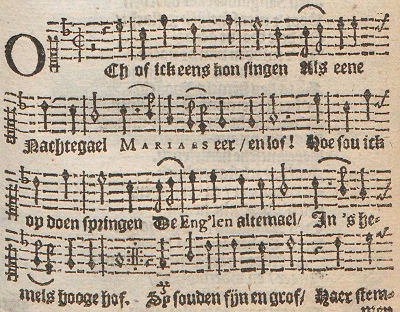 OCh of ick eens kon singen Als eene
Nachtegael MARIAES eer / en lof ! Hoe sou ick
op doen springen De Eng'len altemael / In 's he-
mels hooge hof. Sy souden fijn en grof / Haer stem-
men